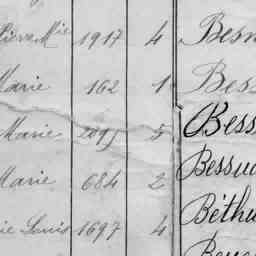 Pierre Mie 1917 4 Besn
Marie 162 1 Bess
Marie 5 Bess
Marie 684 2 Bessu
ie Louis 1697 4 Béthu